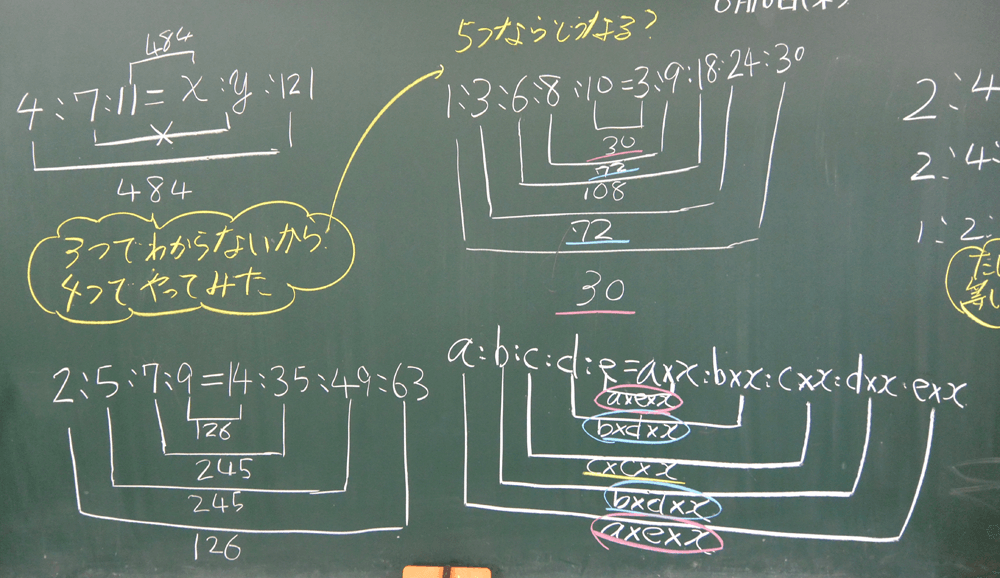 484
4:7:11=x:y:121
484
3つでわからないから
4つでやってみた
5つならどうなる?
1:3:6:8:10=3:9:18:24:30
30
72
108
72
30
2:5:7:9=14:35:49:63
126
245
245
126
a:b:c:d:e=a×x:b×x:c×x:d×x:e×x
a×e×x
b×d×x
c×c×x
b×d×x
a×e×x
2:4
2:4:
1:2: